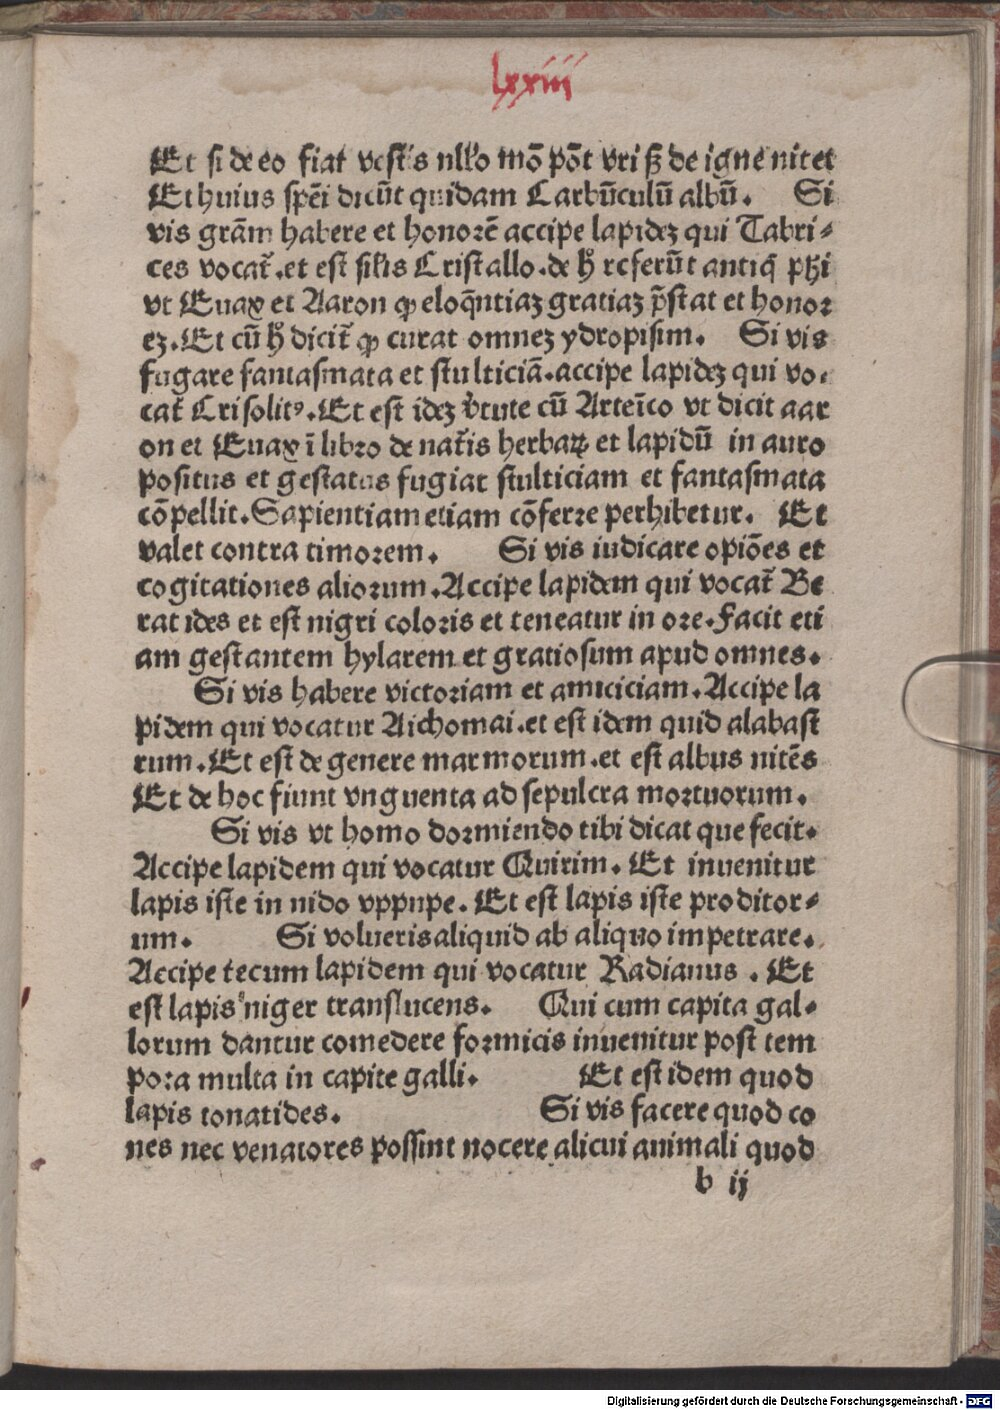 lxxiii
Et si de eo fiat vestis nllo mō pōt vri sz de igne nitet
Et huius spēi dicūt quidam Carbūculū albū. Si
vis grām habere et honorē accipe lapidez qui Tabri⸗
ces vocat̄.et est silis Cristallo.de h̄ referūt antiq̄ phi
vt Euax et Aaron ꝙ eloq̄ntiaz gratiaz p̄stat et honor
ez.Et cū h̄ dicit̄ ꝙ curat omnez ydropisim. Si vis
fugare fantasmata et stulticiā.accipe lapidez qui vo⸗
cat̄ Crisolitꝰ.Et est idez v̄tute cū Arteīco vt dicit aar
on et Euax ī libro de nat̄is herbaꝝ et lapidū in auro
positus et gestatus fugiat stulticiam et fantasmata
cōpellit.Sapientiam etiam cōferre perhibetur. Et
valet contra timorem. Si vis iudicare opiōes et
cogitationes aliorum.Accipe lapidem qui vocat̄ Be
ratides et est nigri coloris et teneatur in ore.Facit eti
am gestantem hylarem et gratiosum apud omnes.
Si vis habere victoriam et amiciciam.Accipe la
pidem qui vocatur Aichomai.et est idem quid alabast
rum.Et est de genere marmorum.et est albus nitēs
Et de hoc fiunt vnguenta ad sepulcra mortuorum.
Si vis vt homo dormiendo tibi dicat que fecit.
Accipe lapidem qui vocatur Quirim. Et inuenitur
lapis iste in nido vppupe. Et est lapis iste proditor⸗
um. Si volueris aliquid ab aliquo impetrare.
Accipe tecum lapidem qui vocatur Radianus . Et
est lapis niger translucens. Qui cum capita gal⸗
lorum dantur comedere formicis inuenitur post tem
pora multa in capite galli. Et est idem quod
lapis tonatides. Si vis facere quod co
nes nec venatores possint nocere alicui animali quod
b ij
Digitalisierung gefördert durch die Deutsche Forschungsgemeinschaft - DFG